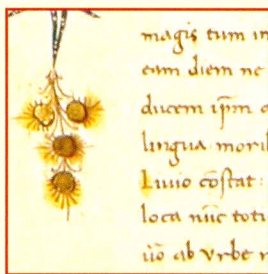 magis tum in
eam diem ne
ducem ip̄m
lingua moril
Liuio cōstat:
loca nūc toti
ab vrbe